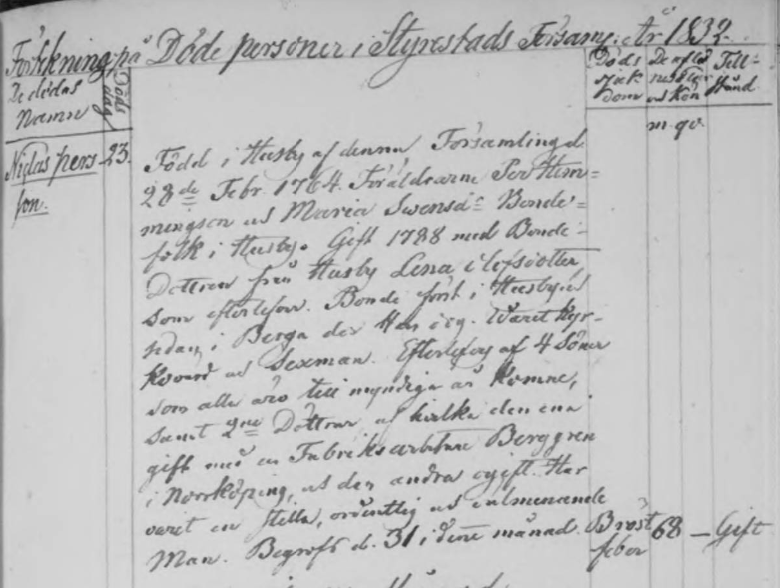 Förtekning på Döde personer i Styrestads Församl: År 1832.
De dödas
Namn
Döds
dag
Döds
sjuk
dom
De aflid
nes ålder
och kön
m. qv.
Till-
stånd
Niclas pers
son.
23.
Född i Husby af denna Församling d.
28de Febr. 1764. Föräldrarne Per Hem=
mingson och Maria Svensdr Bonde=
folk i Husby. Gift 1788 med Bonde-
Dottren från Husby Lena Olofsdotter
som efterlefver. Bonde först i Husby och
sedan i Berga der Han dog. Warit Kyr-
kovard och Sexman. Efterlefves af 4 Söner
som alla äro till myndiga år komne,
samt 2ne Döttrar af hvilka den ena
gift med en Fabriksarbetare Berggren
i Norrköping, och den andra ogift. Har
varit en stilla, ordentlig och välmenande
Man. Begrofs d. 31 i denne månad.
Bröst
feber
68 — Gift